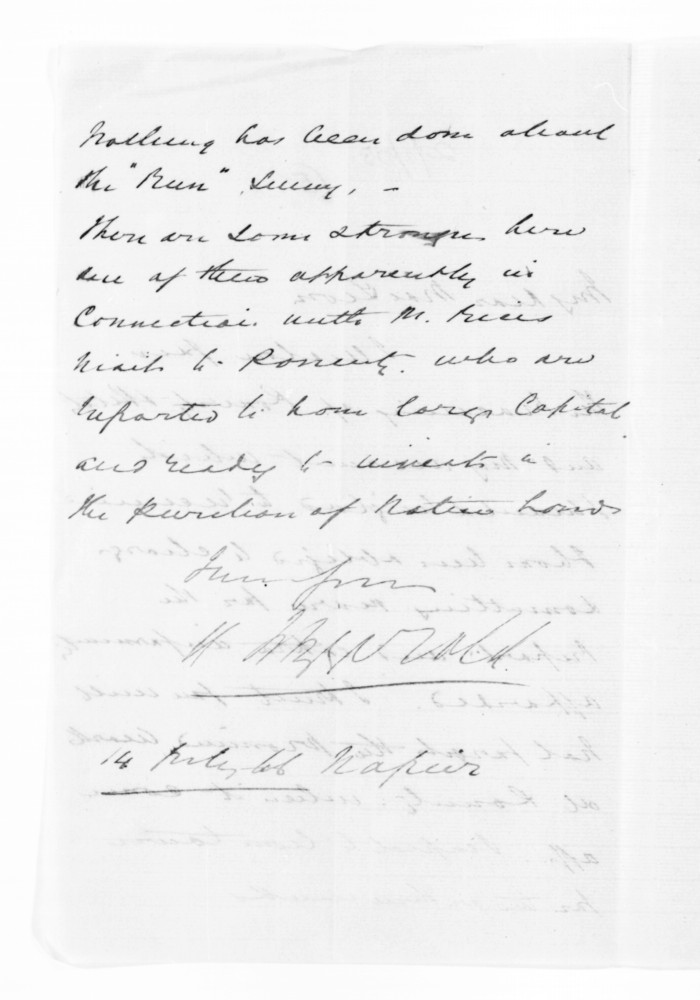 Nothing has been done about
the "Run" Survey. –
There are some strangers here
one of them apparently in
Connection with Mr.
visits to who are
reported to have large Capital
and ready to invest in
the purchase of Native Lands
Truly yours
H Fitzgerald.
14 July 66 Napier